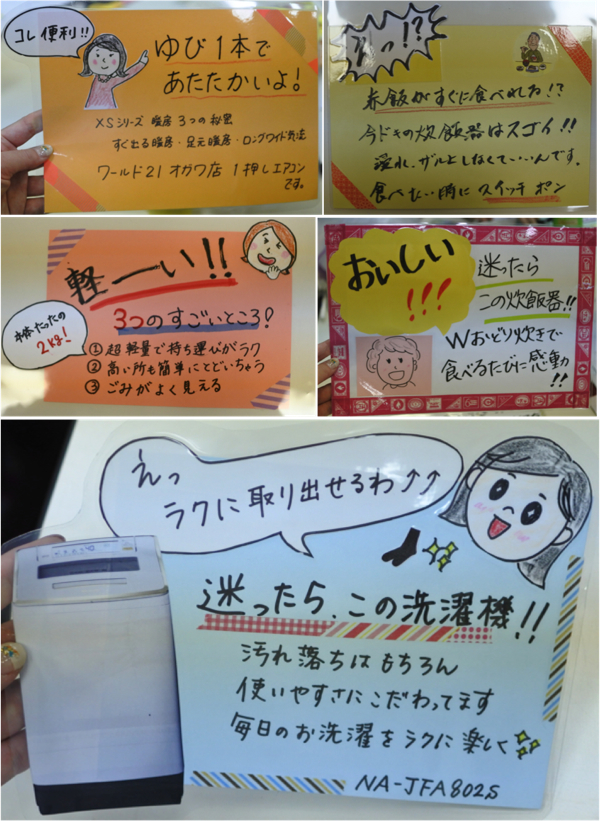 コレ便利!!
ゆび1本で
あたたかいよ!
XSシリーズ 暖房 3つの秘密
すぐでる暖房・足元暖房・ロングワイド気流
ワールド21オガワ店 1押しエアコン
です。
えっ!?
赤飯がすぐに食べれるね!?
今ドキの炊飯器はスゴイ!!
浸水、ザルとしなくていいんです。
食べたい時に スイッチ ポン
軽ーい!!
本体たったの
2kg!
3つのすごいところ!
① 超軽量で持ち運びがラク
② 高い所も簡単にとどいちゃう
③ ごみがよく見える
おいしい
!!!
迷ったら
この炊飯器!!
Wおどり炊きで
食べるたびに感動
!!
えっ
ラクに取り出せるわ↑↑
迷ったら、この洗濯機!!
汚れ落ちはもちろん
使いやすさにこだわってます
毎日のお洗濯をラクに楽しく
NA-JFA802S